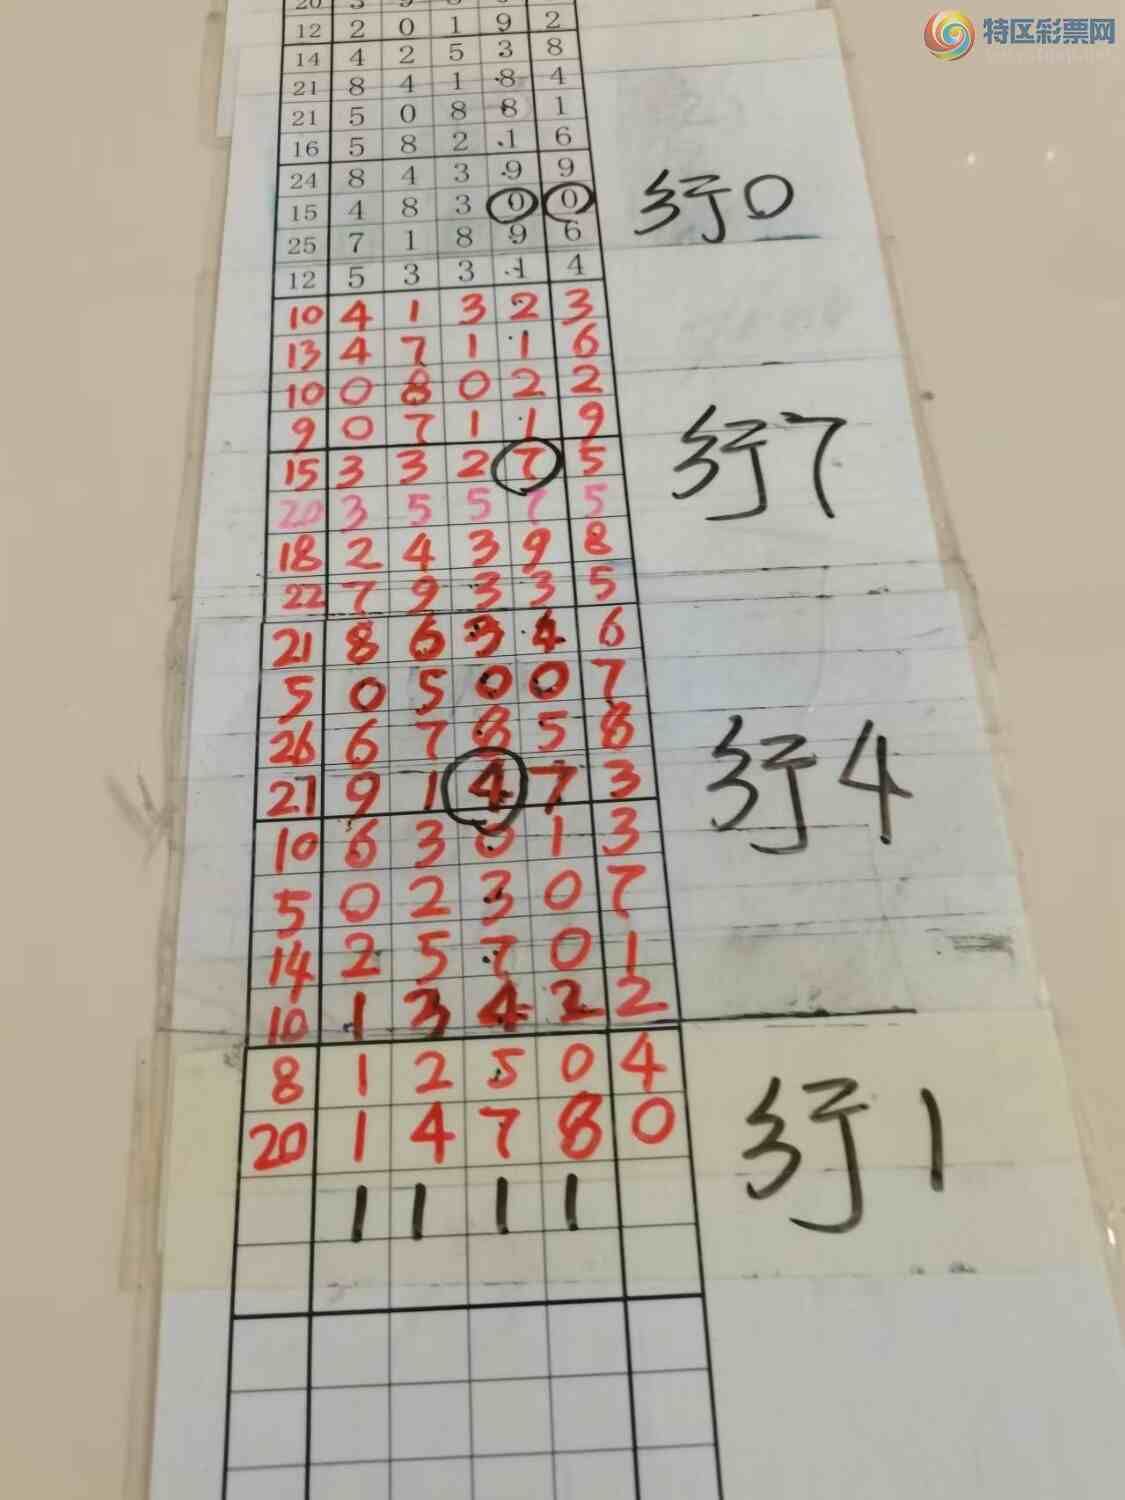 特区彩票网
12 2 0 1 9 2
14 4 2 5 3 8
21 8 4 1 8 4
21 5 0 8 8 1
16 5 8 2 1 6
24 8 4 3 9 9
15 4 8 3 0 0 行0
25 7 1 8 9 6
12 5 3 3 1 4
10 4 1 3 2 3
13 4 7 1 1 6
10 0 8 0 2 2
9 0 7 1 1 9
15 3 3 2 7 5 行7
20 3 5 5 7 5
18 2 4 3 9 8
22 7 9 3 3 5
21 8 6 3 4 6
5 0 5 0 0 7
26 6 7 8 5 8
21 9 1 4 7 3 行4
10 6 3 0 1 3
5 0 2 3 0 7
14 2 5 7 0 1
10 1 3 4 2 2
8 1 2 5 0 4
20 1 4 7 8 0 行1
1 1 1 1